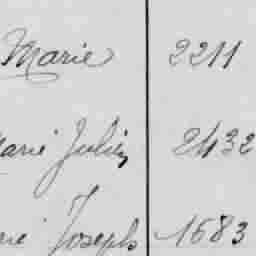 Marie 2211
Marie Julien 2432
rie Joseph 1683